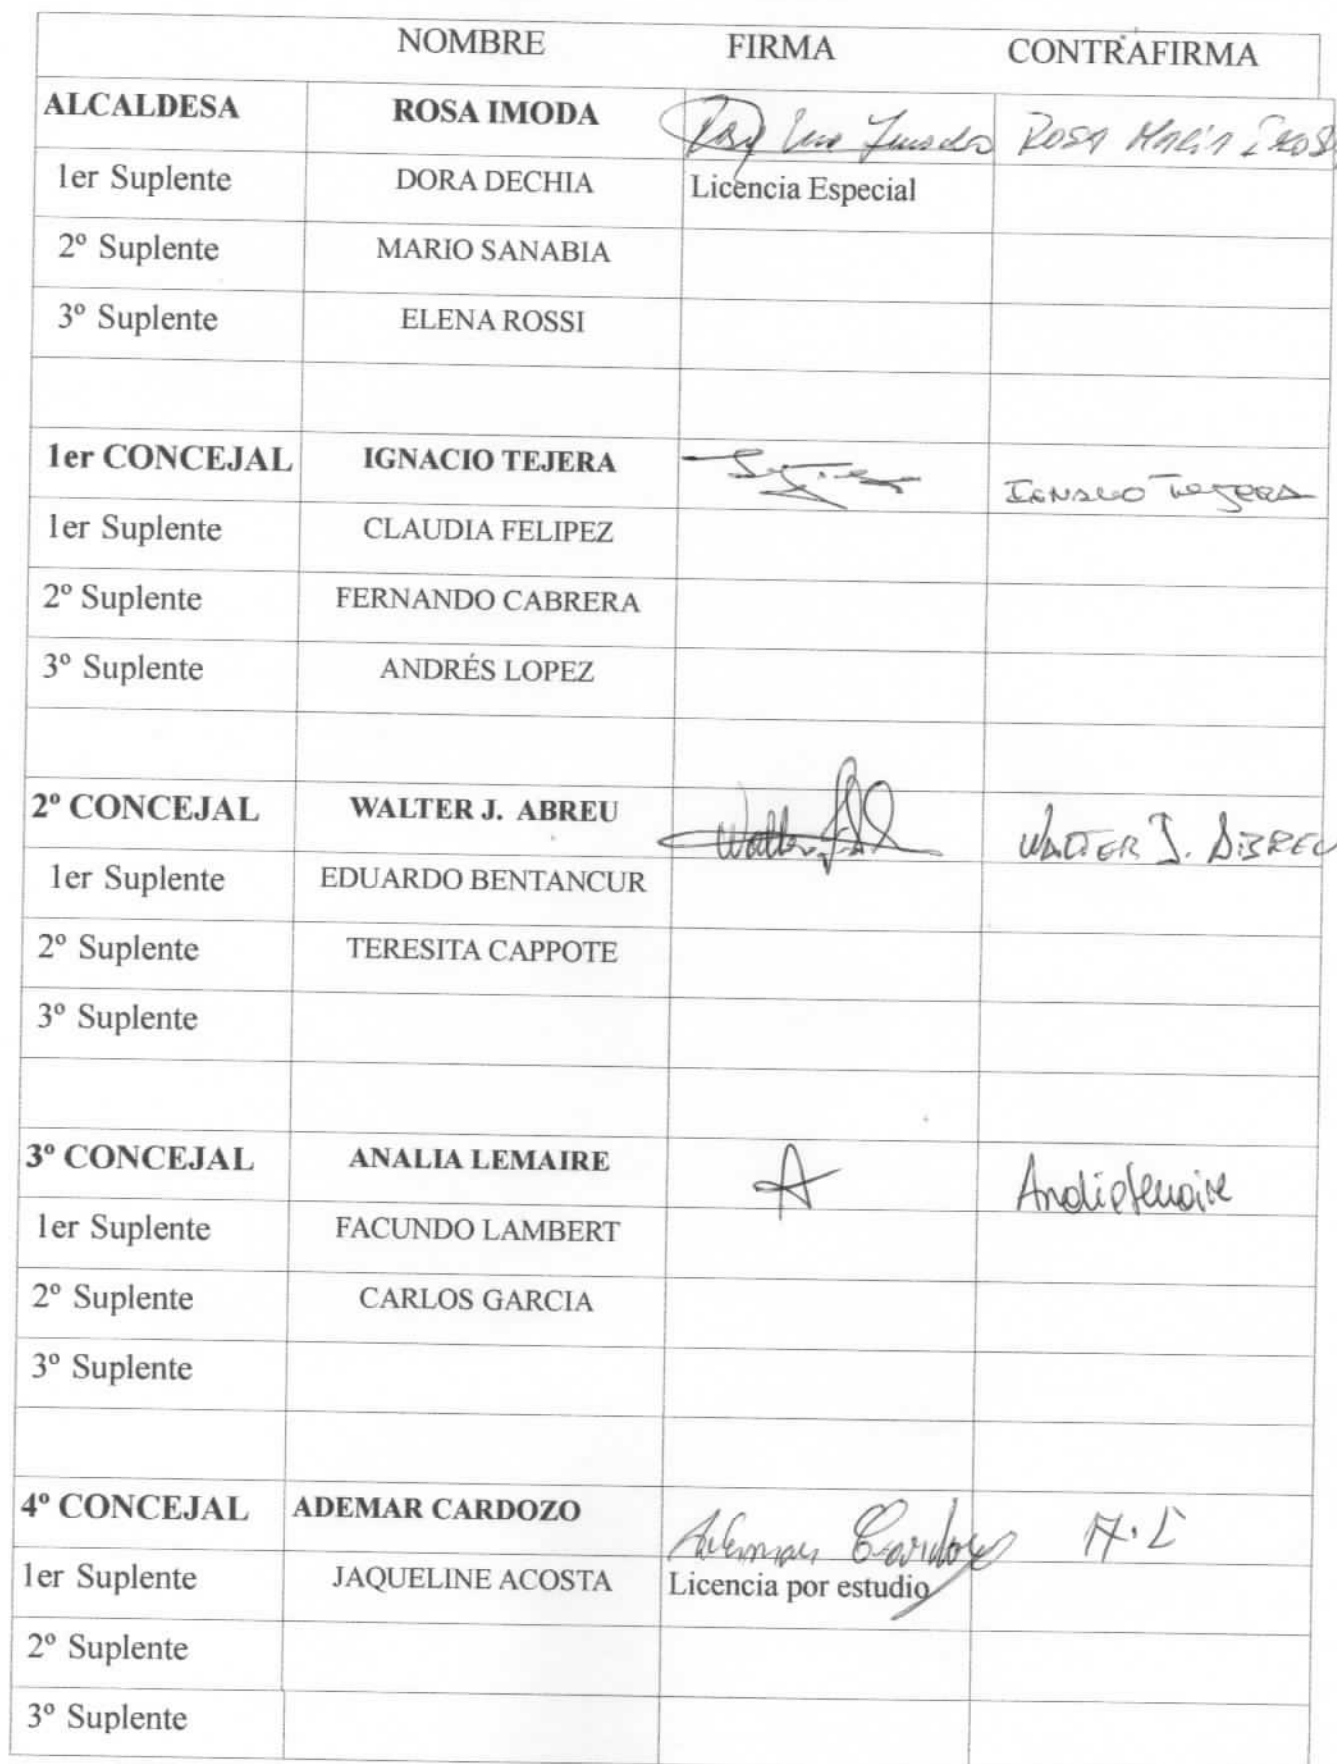 NOMBRE FIRMA CONTRAFIRMA
ALCALDESA ROSA IMODA ROSA MARIA
1er Suplente DORA DECHIA Licencia Especial
2º Suplente MARIO SANABIA
3º Suplente ELENA ROSSI
1er CONCEJAL IGNACIO TEJERA IGNACIO TEJERA
1er Suplente CLAUDIA FELIPEZ
2º Suplente FERNANDO CABRERA
3º Suplente ANDRÉS LOPEZ
2º CONCEJAL WALTER J. ABREU Walter WALTER J. ABREU
1er Suplente EDUARDO BENTANCUR
2º Suplente TERESITA CAPPOTE
3º Suplente
3º CONCEJAL ANALIA LEMAIRE A Analia Lemaire
1er Suplente FACUNDO LAMBERT
2º Suplente CARLOS GARCIA
3º Suplente
4º CONCEJAL ADEMAR CARDOZO Ademar Cardozo A.C
1er Suplente JAQUELINE ACOSTA Licencia por estudio
2º Suplente
3º Suplente